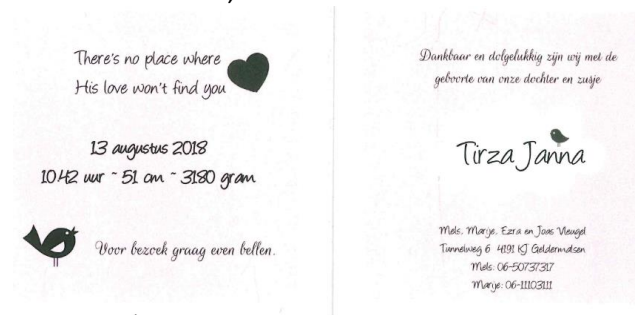 There's no place where
His love won't find you
13 augustus 2018
10.42 uur ~ 51 cm ~ 3180 gram
Voor bezoek graag even bellen.
Dankbaar en dolgelukkig zijn wij met de
geboorte van onze dochter en zusje
Tirza Janna
Mels, Marije, Ezra en Joas Vleugel
Tunnelweg 6 4191 KJ Geldermalsen
Mels: 06-50737317
Marije: 06-11103111